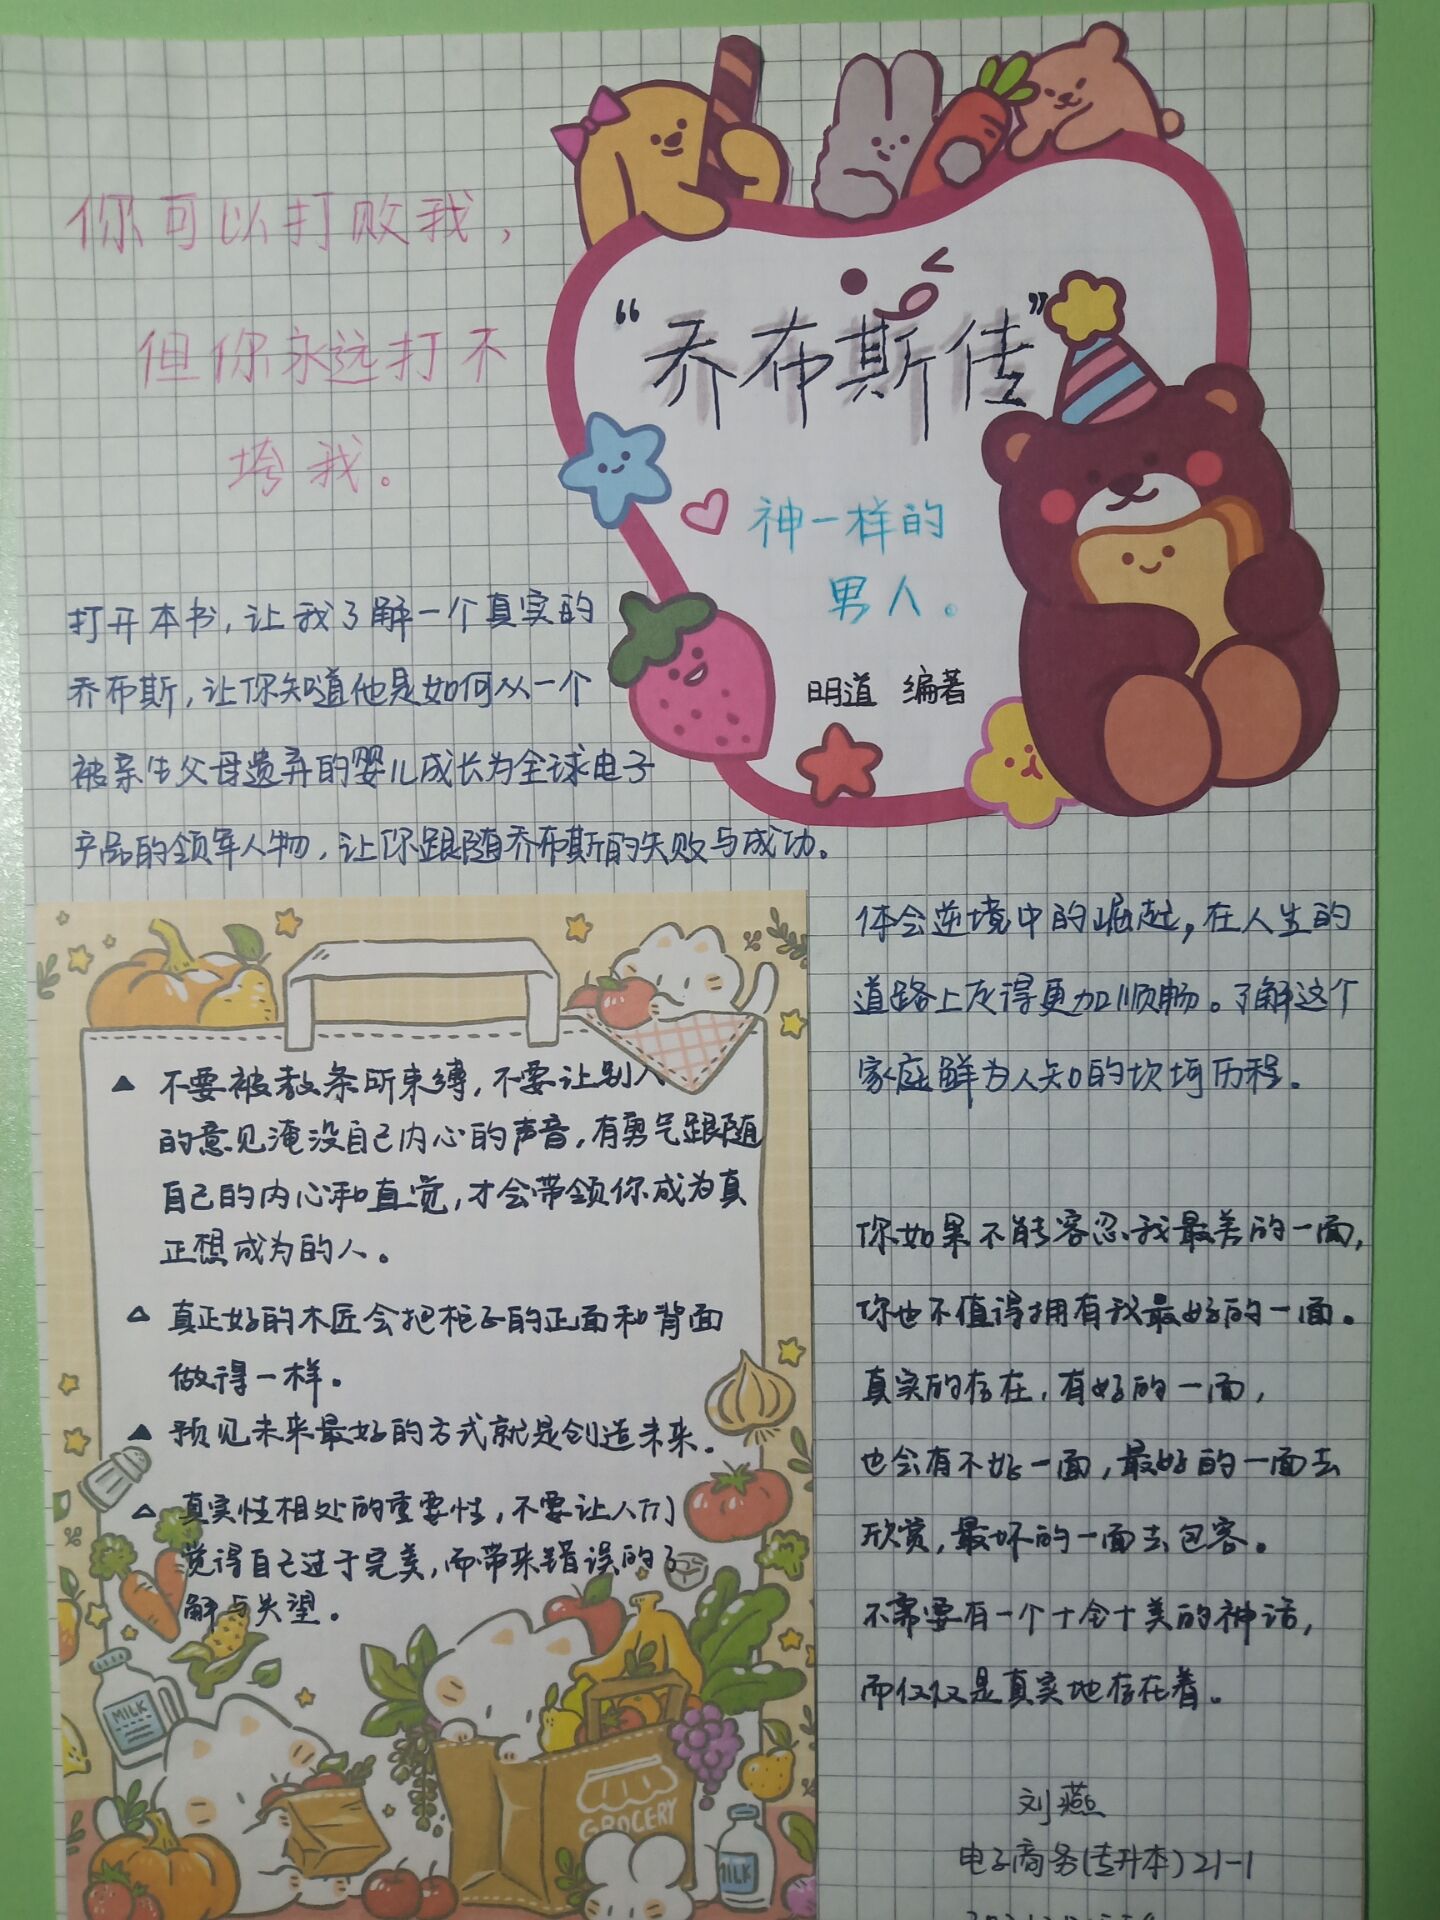 你可以打败我，
但你永远打不
垮我。
“乔布斯传”
神一样的
男人。
明道 编著
打开本书，让我了解一个真实的
乔布斯，让你知道他是如何从一个
被亲生父母遗弃的婴儿成长为全球电子
产品的领军人物，让你跟随乔布斯的失败与成功。
体会逆境中的崛起，在人生的
道路上走得更加顺畅。了解这个
家庭鲜为人知的坎坷历程。
▲ 不要被教条所束缚，不要让别人
的意见淹没自己内心的声音，有勇气跟随
自己的内心和直觉，才会带领你成为真
正想成为的人。
△ 真正好的木匠会把柜子的正面和背面
做得一样。
▲ 预见未来最好的方式就是创造未来。
△ 真实性相处的重要性，不要让人们
觉得自己过于完美，而带来错误的了
解与失望。
你如果不能容忍我最差的一面，
你也不值得拥有我最好的一面。
真实的存在，有好的一面，
也会有不好一面，最好的一面去
欣赏，最坏的一面去包容。
不需要有一个十全十美的神话，
而仅仅是真实地存在着。
刘燕
电子商务(专升本)21-1
MILK
GROCERY
MILK